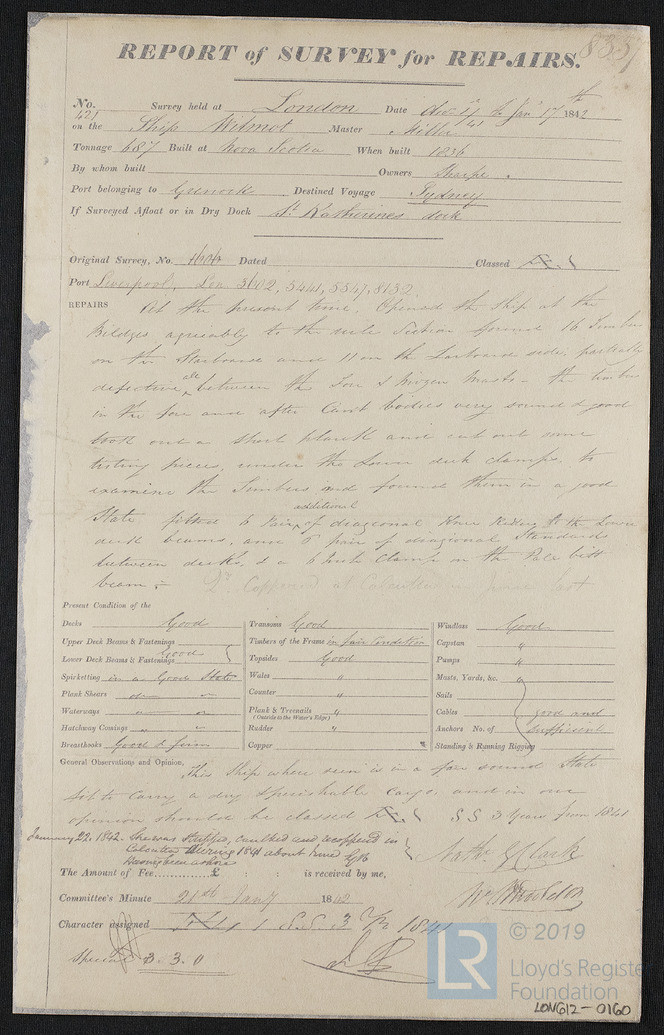 8357
REPORT of SURVEY for REPAIRS.
No. 421 Survey held at London Date Dec 41 to Jan 17th 1842
on the Ship Wilmot Master Miller
Tonnage 687 Built at Nova Scotia When built 1836
By whom built Owners Sharpe
Port belonging to Greenock Destined Voyage Sydney
If Surveyed Afloat or in Dry Dock St Katherines dock
Original Survey, No. Dated Classed Æ. 1
Port Liverpool, Lon 3602, 5441, 5547, 8132
REPAIRS At the present time, Opened the Ship at the
Bildges agreeably to the rule Section found 16 Timbers
on the Starboard and 11 on the Larboard side, partially
defective all between the Fore & Mizen Masts - the timbers
in the fore and after Cant bodies very sound & good
took out a short plank and cut out some
listing pieces, under the Lower deck clamps, to
examine the Timbers and found them in a good
State fitted 6 Pair of additional diagional Knee Riders to the Lower
deck beams, and 6 pair of diagional Standards
between decks, & a 6 inch Clamp on the Pale bitt
beam :- Dr. Coppered at Calcutta in June last
Present Condition of the
Decks Good
Upper Deck Beams & Fastenings
Lower Deck Beams & Fastenings Good
Spirketting in a Good State
Plank Shears do "
Waterways " "
Hatchway Comings " "
Breasthooks Good & firm
Transoms Good
Timbers of the Frame in fair Condition
Topsides Good
Wales "
Counter "
Plank & Treenails "
(Outside to the Water's Edge)
Rudder "
Copper "
Windlass Good
Capstan "
Pumps "
Masts, Yards, &c. "
Sails
Cables good and
Anchors No. of sufficient
Standing & Running Rigging
General Observations and Opinion, This Ship where seen is in a fair sound State
fit to carry a dry perishable cargo, and in our
opinion should be classed Æ. 1 S S 3 Years from 1841
January 22. 1842. She was stripped, caulked and recoppered in
Calcutta during 1841 about June
The Amount of Fee £ : : is received by me,
Nathl. G Clark
Committee's Minute 21st Jany 1842
Character assigned Æ 1 S.S. 3 Yrs 1841
Special 3. 3. 0
© 2019
LR
Lloyd's Register
Foundation
LON612-0160